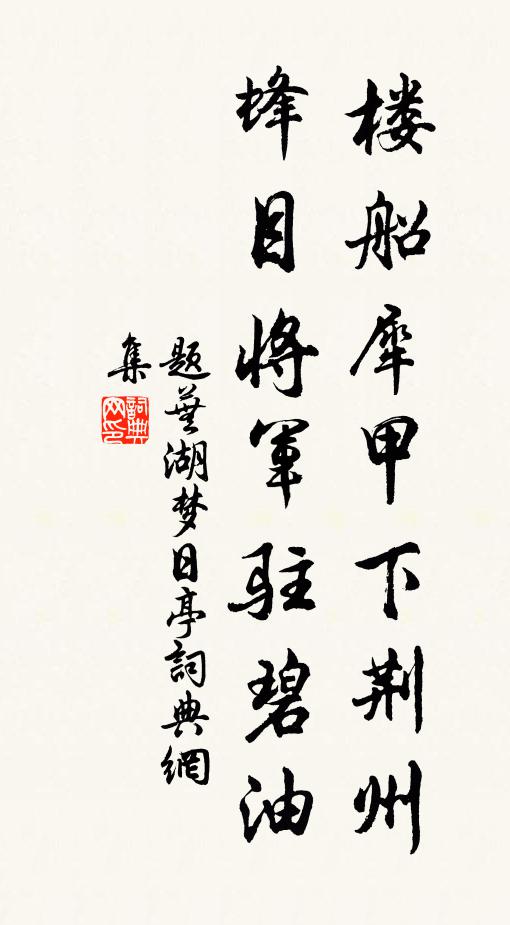 楼船犀甲下荆州
蜂目将军驻碧油
题芜湖梦日亭詞典網
集
詞典
网印